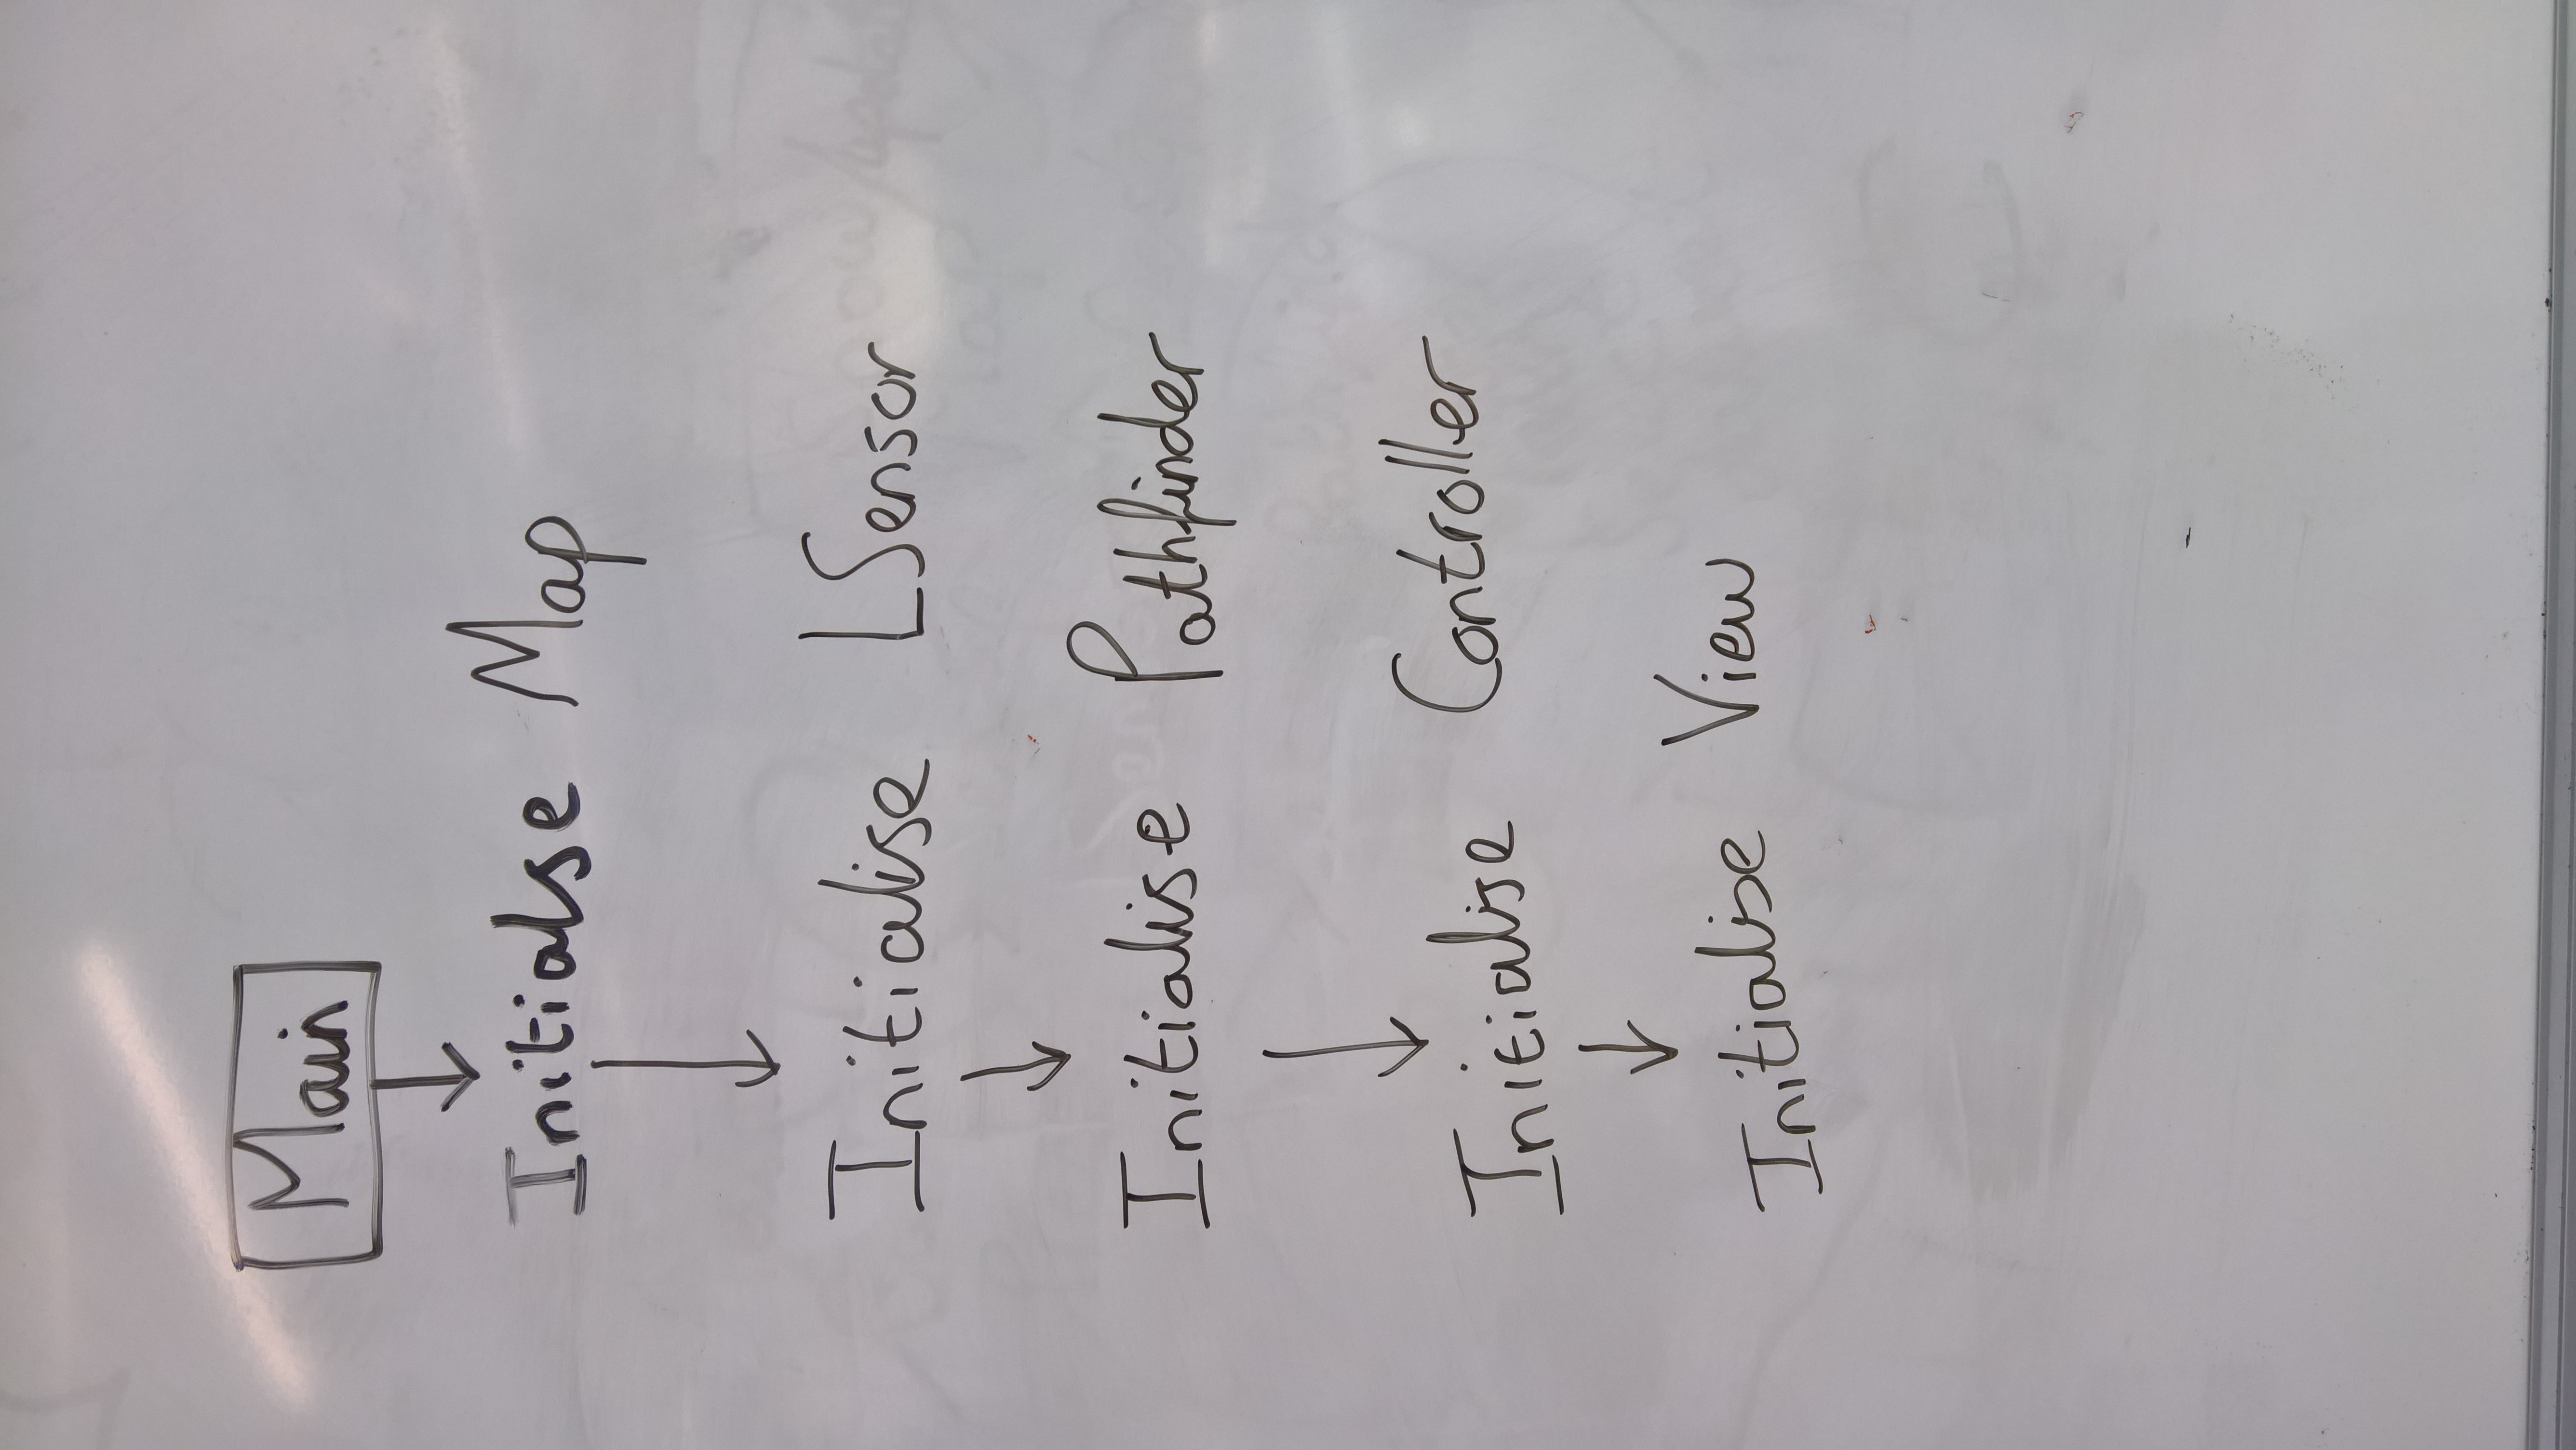 Main
Initialse Map
Initialise LSensor
Initialise Pathfinder
Initialise Controller
Initialise View